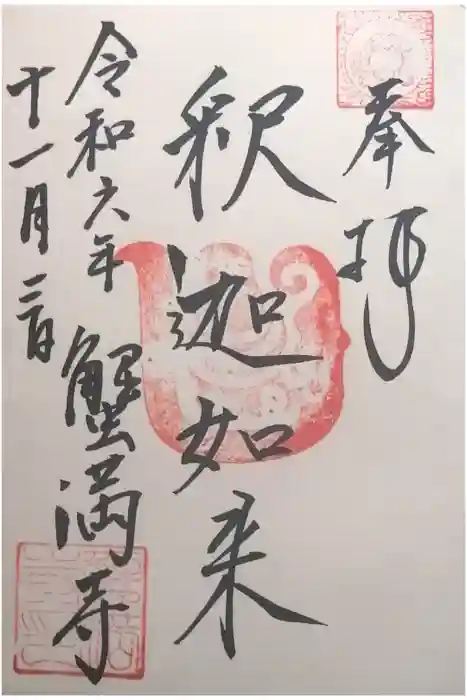 奉拝
釈迦如来
令和六年
十一月三日
蟹満寺